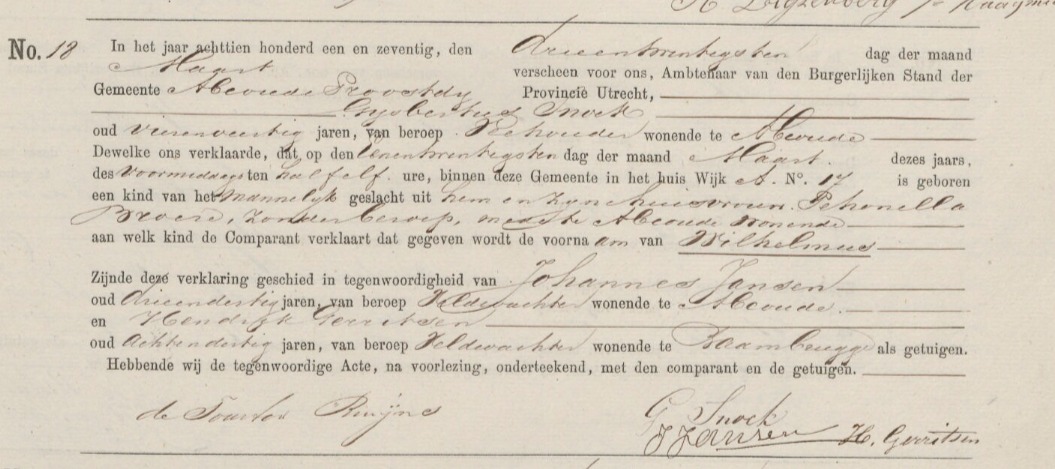 No. 18
In het jaar achttien honderd een en zeventig, den drieentwintigsten dag der maand
Maart verscheen voor ons, Ambtenaar van den Burgerlijken Stand der
Gemeente Abcoude Proostdy Provincië Utrecht,
Gysbertus Snoek
oud vierenveertig jaren, van beroep wonende te Abcoude
Dewelke ons verklaarde, dat op den eenentwintigsten dag der maand Maart dezes jaars,
des voormiddags ten half elf ure, binnen deze Gemeente in het huis Wijk A. No. 17 is geboren
een kind van het mannelyk geslacht uit hem en zyne huisvrouw Petronella
Broere, zonder beroep, mede te Abcoude wonende
aan welk kind de Comparant verklaart dat gegeven wordt de voorna am van Wilhelmus
Zijnde deze verklaring geschied in tegenwoordigheid van Johannes Jansen
oud drieendertig jaren, van beroep Veldwachter wonende te Abcoude
en Hendrik Gerritsen
oud achtendertig jaren, van beroep Veldwachter wonende te Baambrugge als getuigen.
Hebbende wij de tegenwoordige Acte, na voorlezing, onderteekend, met den comparant en de getuigen.
G Snoek
J Jansen H. Gerritsen